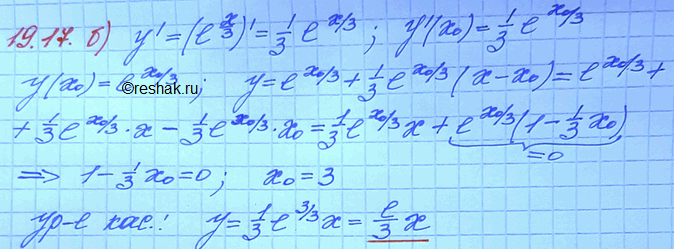 19.17. б) y' = (e^{x/3})' = 1/3 e^{x/3}; y'(x₀) = 1/3 e^{x₀/3}
y(x₀) = e^{x₀/3}; y = e^{x₀/3} + 1/3 e^{x₀/3} (x - x₀) = e^{x₀/3} +
©reshak.ru
+ 1/3 e^{x₀/3} · x - 1/3 e^{x₀/3} · x₀ = 1/3 e^{x₀/3} x + e^{x₀/3} (1 - 1/3 x₀)
=0
=> 1 - 1/3 x₀ = 0; x₀ = 3
ур-е кас.: y = 1/3 e^{3/3} x = e/3 x